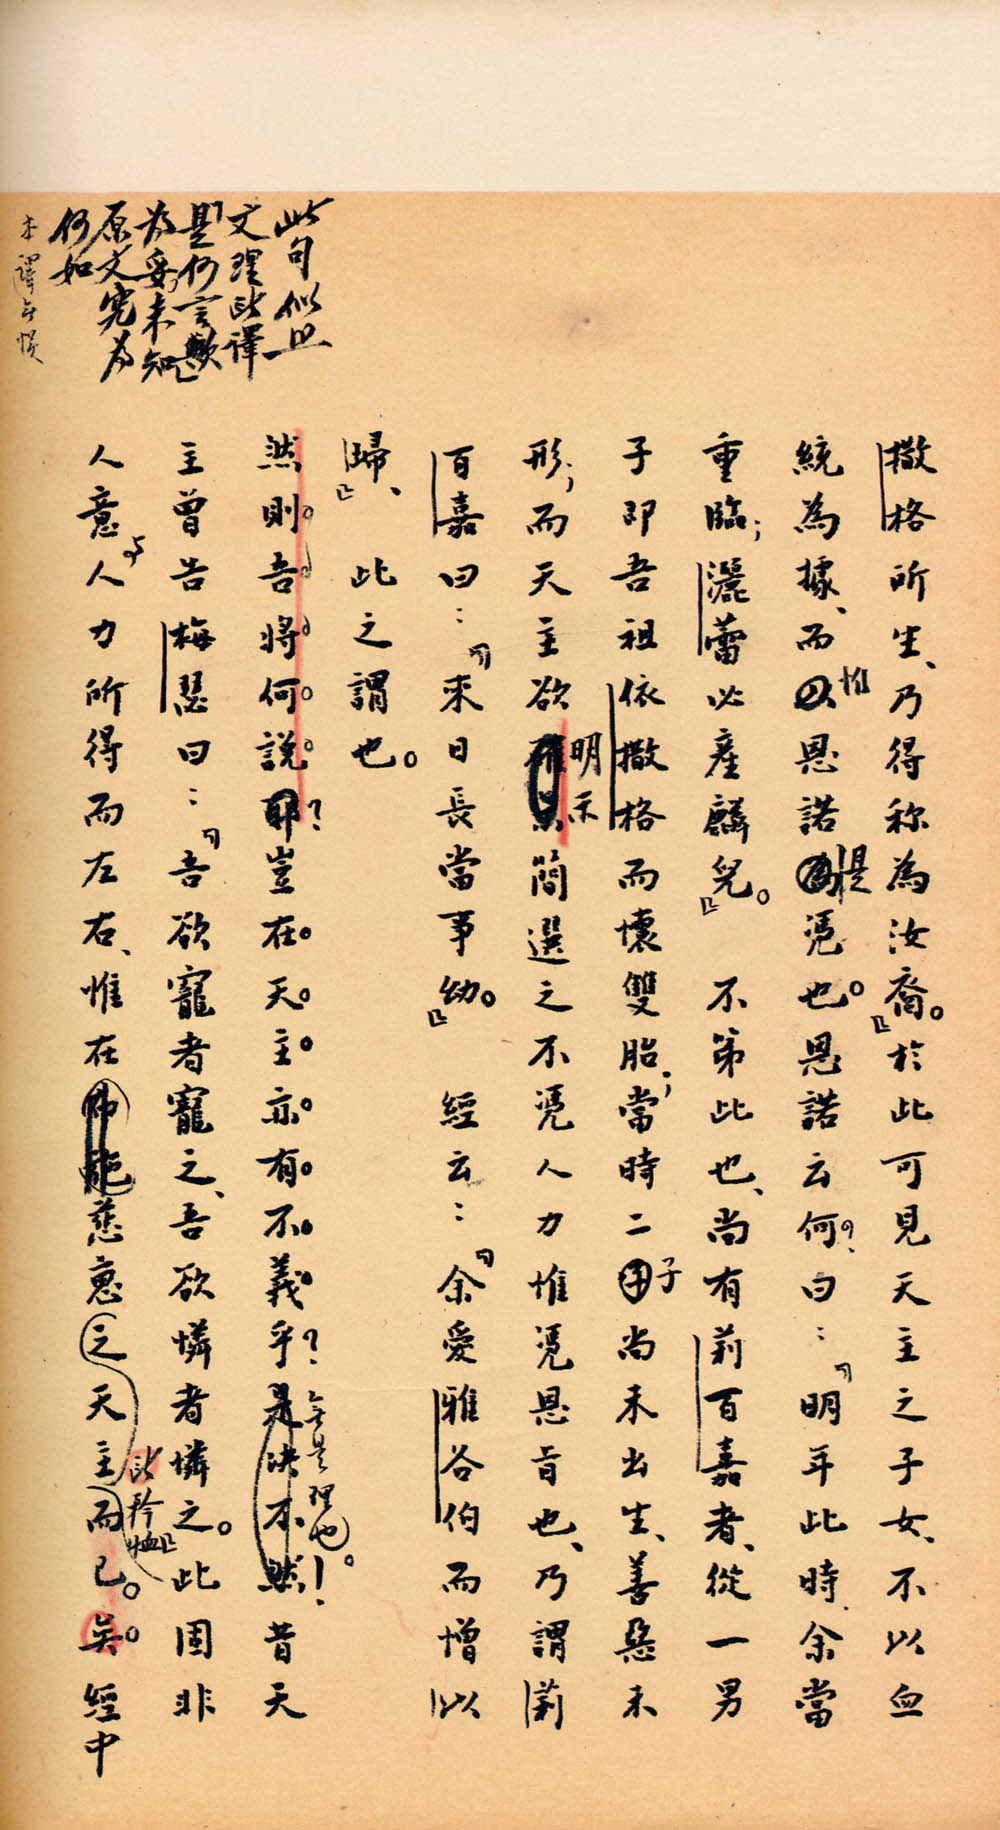 撒格所生、乃得稱為汝裔。』於此可見天主之子女、不以血
統為據、而惟恩諾是憑也。恩諾云何？曰：『明年此時、余當
重臨；灑蕾必產麟兒。』不第此也、尚有莉百嘉者、從一男
子即吾祖依撒格而懷雙胎；當時二子尚未出生、善惡未
形；而天主欲明示簡選之不憑人力惟憑恩旨也、乃謂莉
百嘉曰：『來日長當事幼。』經云：『余愛雅谷伯而憎以
歸、』此之謂也。
然則吾將何說耶？豈在天主亦有不義乎？無是理也。！昔天
主曾告梅瑟曰：『吾欲寵者寵之、吾欲憐者憐之。』此固非
人意與人力所得而左右、惟在慈惠之天主而已。矣經中
此矜恤
此句似與
文理此譯
『是何言歟』
為妥，未知
原文究為
何如
本譯無誤